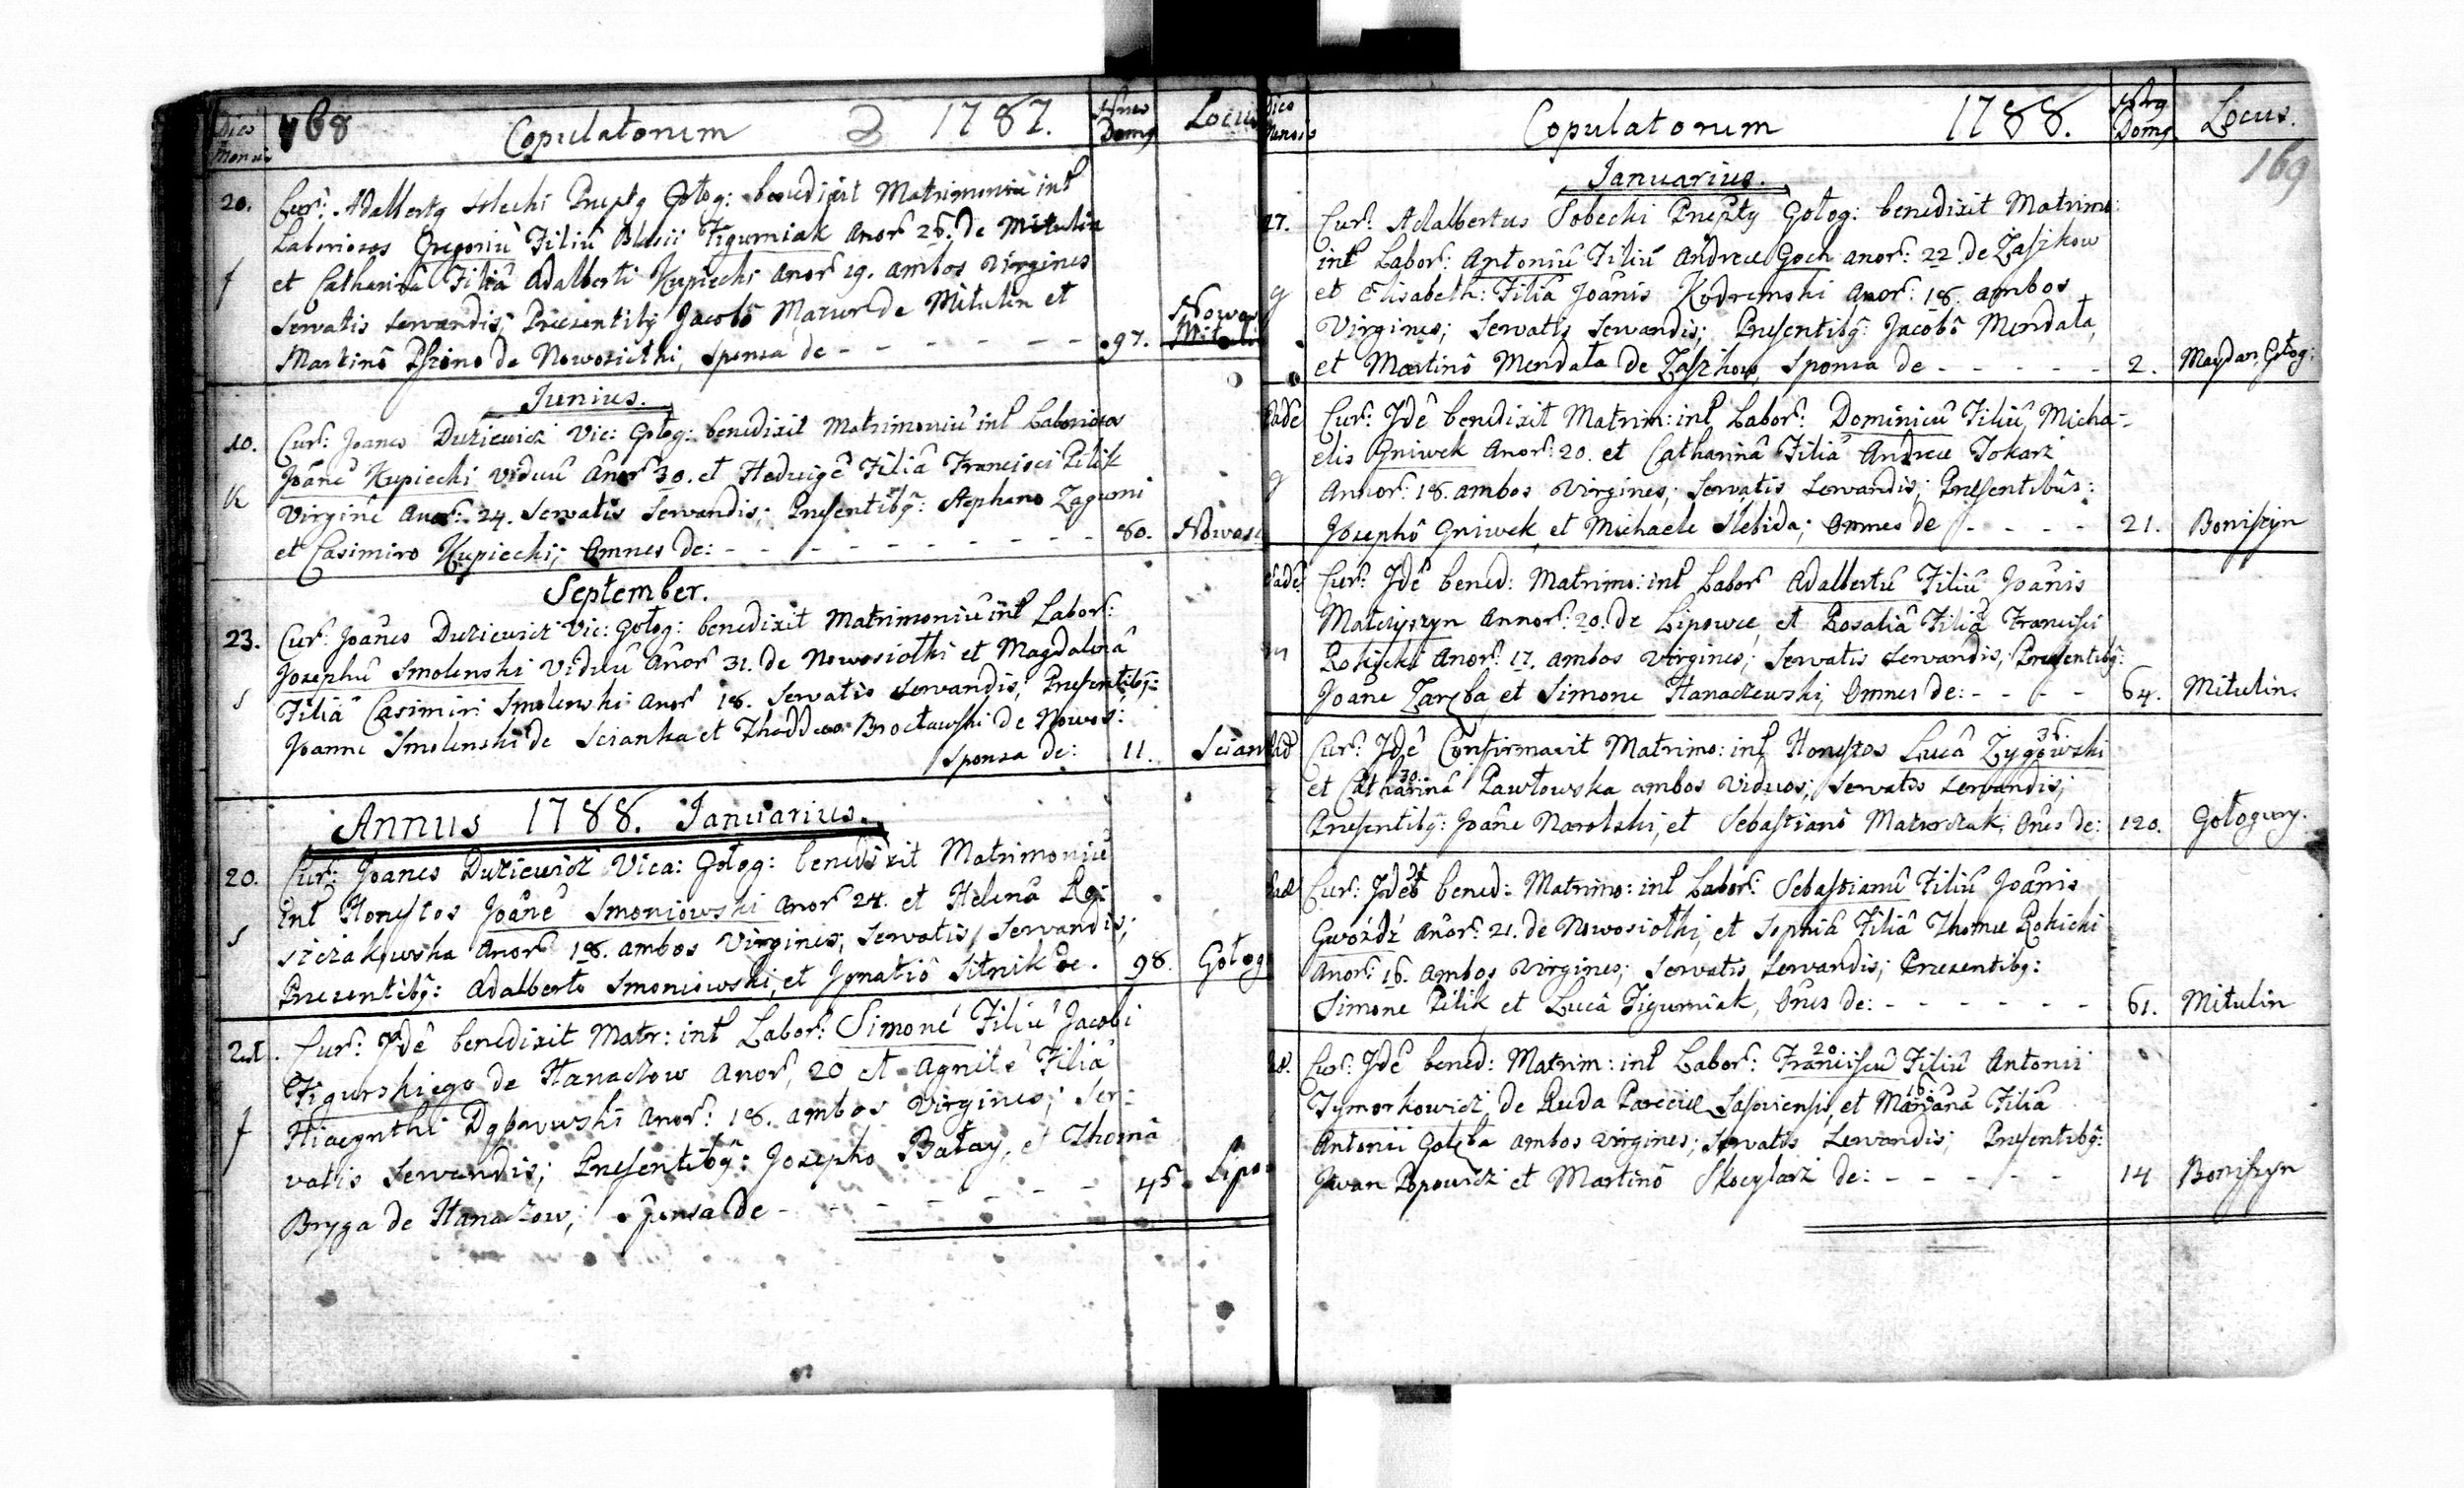 Dies Mensis 168 Copulatorum 1787. Domg Locus
20. Cur: Adalbertg Praeptg Gołog: benedixit Matrimoniũ int
Laboriosos Gregoriũ Filiũ Blasii Figurniak Anor 26. de Mitulin
f et Catharinã Filiã Adalberti Kupiecki Anor 19. ambos Virgines
Servatis Servandis; Praesentibg Jacobô Mazur de Mitulin et
Martinô de Nowosiołki, Sponsa de - - - - - - - 97. Nowos Mituli
Junius.
10. Cur: Joanes Duziewicz Vic: Gołog: benedixit Matrimoniũ int Laboriosos
Joãnẽ Kupiecki Viduũ Anor 30. et Hedvigẽ Filiã Francisci Pilik
k Virginẽ Anor: 24. Servatis Servandis; Praesentibg: Stephano Zagurni
et Casimiro Kupiecki; Omnes de: - - - - - - - - - 80. Nowosi
September.
23. Cur: Joãnes Duziewicz Vic: Gołog: benedixit Matrimoniũ int Labor:
Josephũ Smolenski Viduũ Anor 31. de Nowosiołki et Magdalenã
s Filiã Casimiri Smolenski Anor 18. Servatis Servandis; Praesentibg:
Joanne Smolenski de Scianka et Thaddeo Brocławski de Nowos:
Sponsa de: 11. Scian
Annus 1788. Januarius.
20. Cur: Joanes Duziewicz Vica: Gołog: benedixit Matrimoniũ
int Honestos Joãnẽ Smoniowski Anor 24. et Helenã
s Anor 18. ambos Virgines; Servatis Servandis;
Praezentibg: Adalberto Smoniowski, et Ignatiô Sitnik de. 98. Gołog
Cur: Jdẽ benedixit Matr: int Labor: Simonẽ Filiũ Jacobi
Figurskiego de Hanaczow Anor, 20 et Agnitẽ Filiã
f Hiacynthi Anor: 18. ambos Virgines; Ser:
vatis Servandis; Praesentibg: Josepho Bałay, et Thomã
Bryga de Hanaczow; Sponsa de - - - - - - 45. Lipo
Dies Mensis Copulatorum 1788. Domg Locus.
169
Januarius.
27. Cur: Adalbertus Sobecki Praeptg Gołog: benedixit Matrimo:
int Labor: Antoniũ Filiũ Andreae Goch Anor: 22 de Zaszkow
g et Elisabeth: Filiã Joãnis Kodremski Anor: 18. ambos
Virgines; Servatis Servandis; Praesentibg: Jacobô Mendała,
et Martinô Mendała de Zaszkow, Sponsa de - - - - - 2. Maydan Gołog:
Eadẽ Cur: Jdẽ benedixit Matrim: int Labor: Dominicũ Filiũ Micha-
elis Gniwek Anor: 20. et Catharinã Filiã Andreae Tokarz
g Annor: 18. ambos Virgines; Servatis Servandis; Praesentibûs:
Josephô Gniwek, et Michaele Slebida; Omnes de - - - - 21. Boniszyn
Eadẽ Cur: Jdẽ bened: Matrimo: int Labor Adalbertũ Filiũ Joãnis
Matczyszyn Annor: 20. de Lipowce, et Rosaliã Filiã Francisci
m Rokicki Anor: 17. ambos Virgines; Servatis Servandis; Praesentibg:
Joãne Zaręba, et Simone Hanaczewski, Omnes de: - - - - 64. Mitulin.
Ead Cur: Jdẽ Confirmavit Matrimo: int Honestos Lucã Zygowski 36
z et Catharinã 30. Pawłowska ambos Viduos; Servatis Servandis;
Praesentibg: Joãne Narolski, et Sebastianô Mazurczak; Oñes de: 120. Gołogury.
Ead Cur: Jdẽ bened: Matrimo: int Labor: Sebastianũ Filiũ Joãnis
Gwóźdź Anor: 21. de Nowosiołki, et Sophiã Filiã Thomae Rokicki
Anor: 16. ambos Virgines; Servatis Servandis; Praezentibg:
Simone Pilik et Lucã Figurniak, Oñes de: - - - - - - 61. Mitulin
28. Cur: Jdẽ bened: Matrim: int Labor: Franciscũ 20 Filiũ Antonii
Tymorkowicz, de Ruda Parciae Sasoviensis, et Marianã Filiã
Antonii Gołęba ambos Virgines; Servatis Servandis; Praesentibg:
Jwan Popowicz et Martinô Skocylarz de: - - - - - 14 Boniszyn